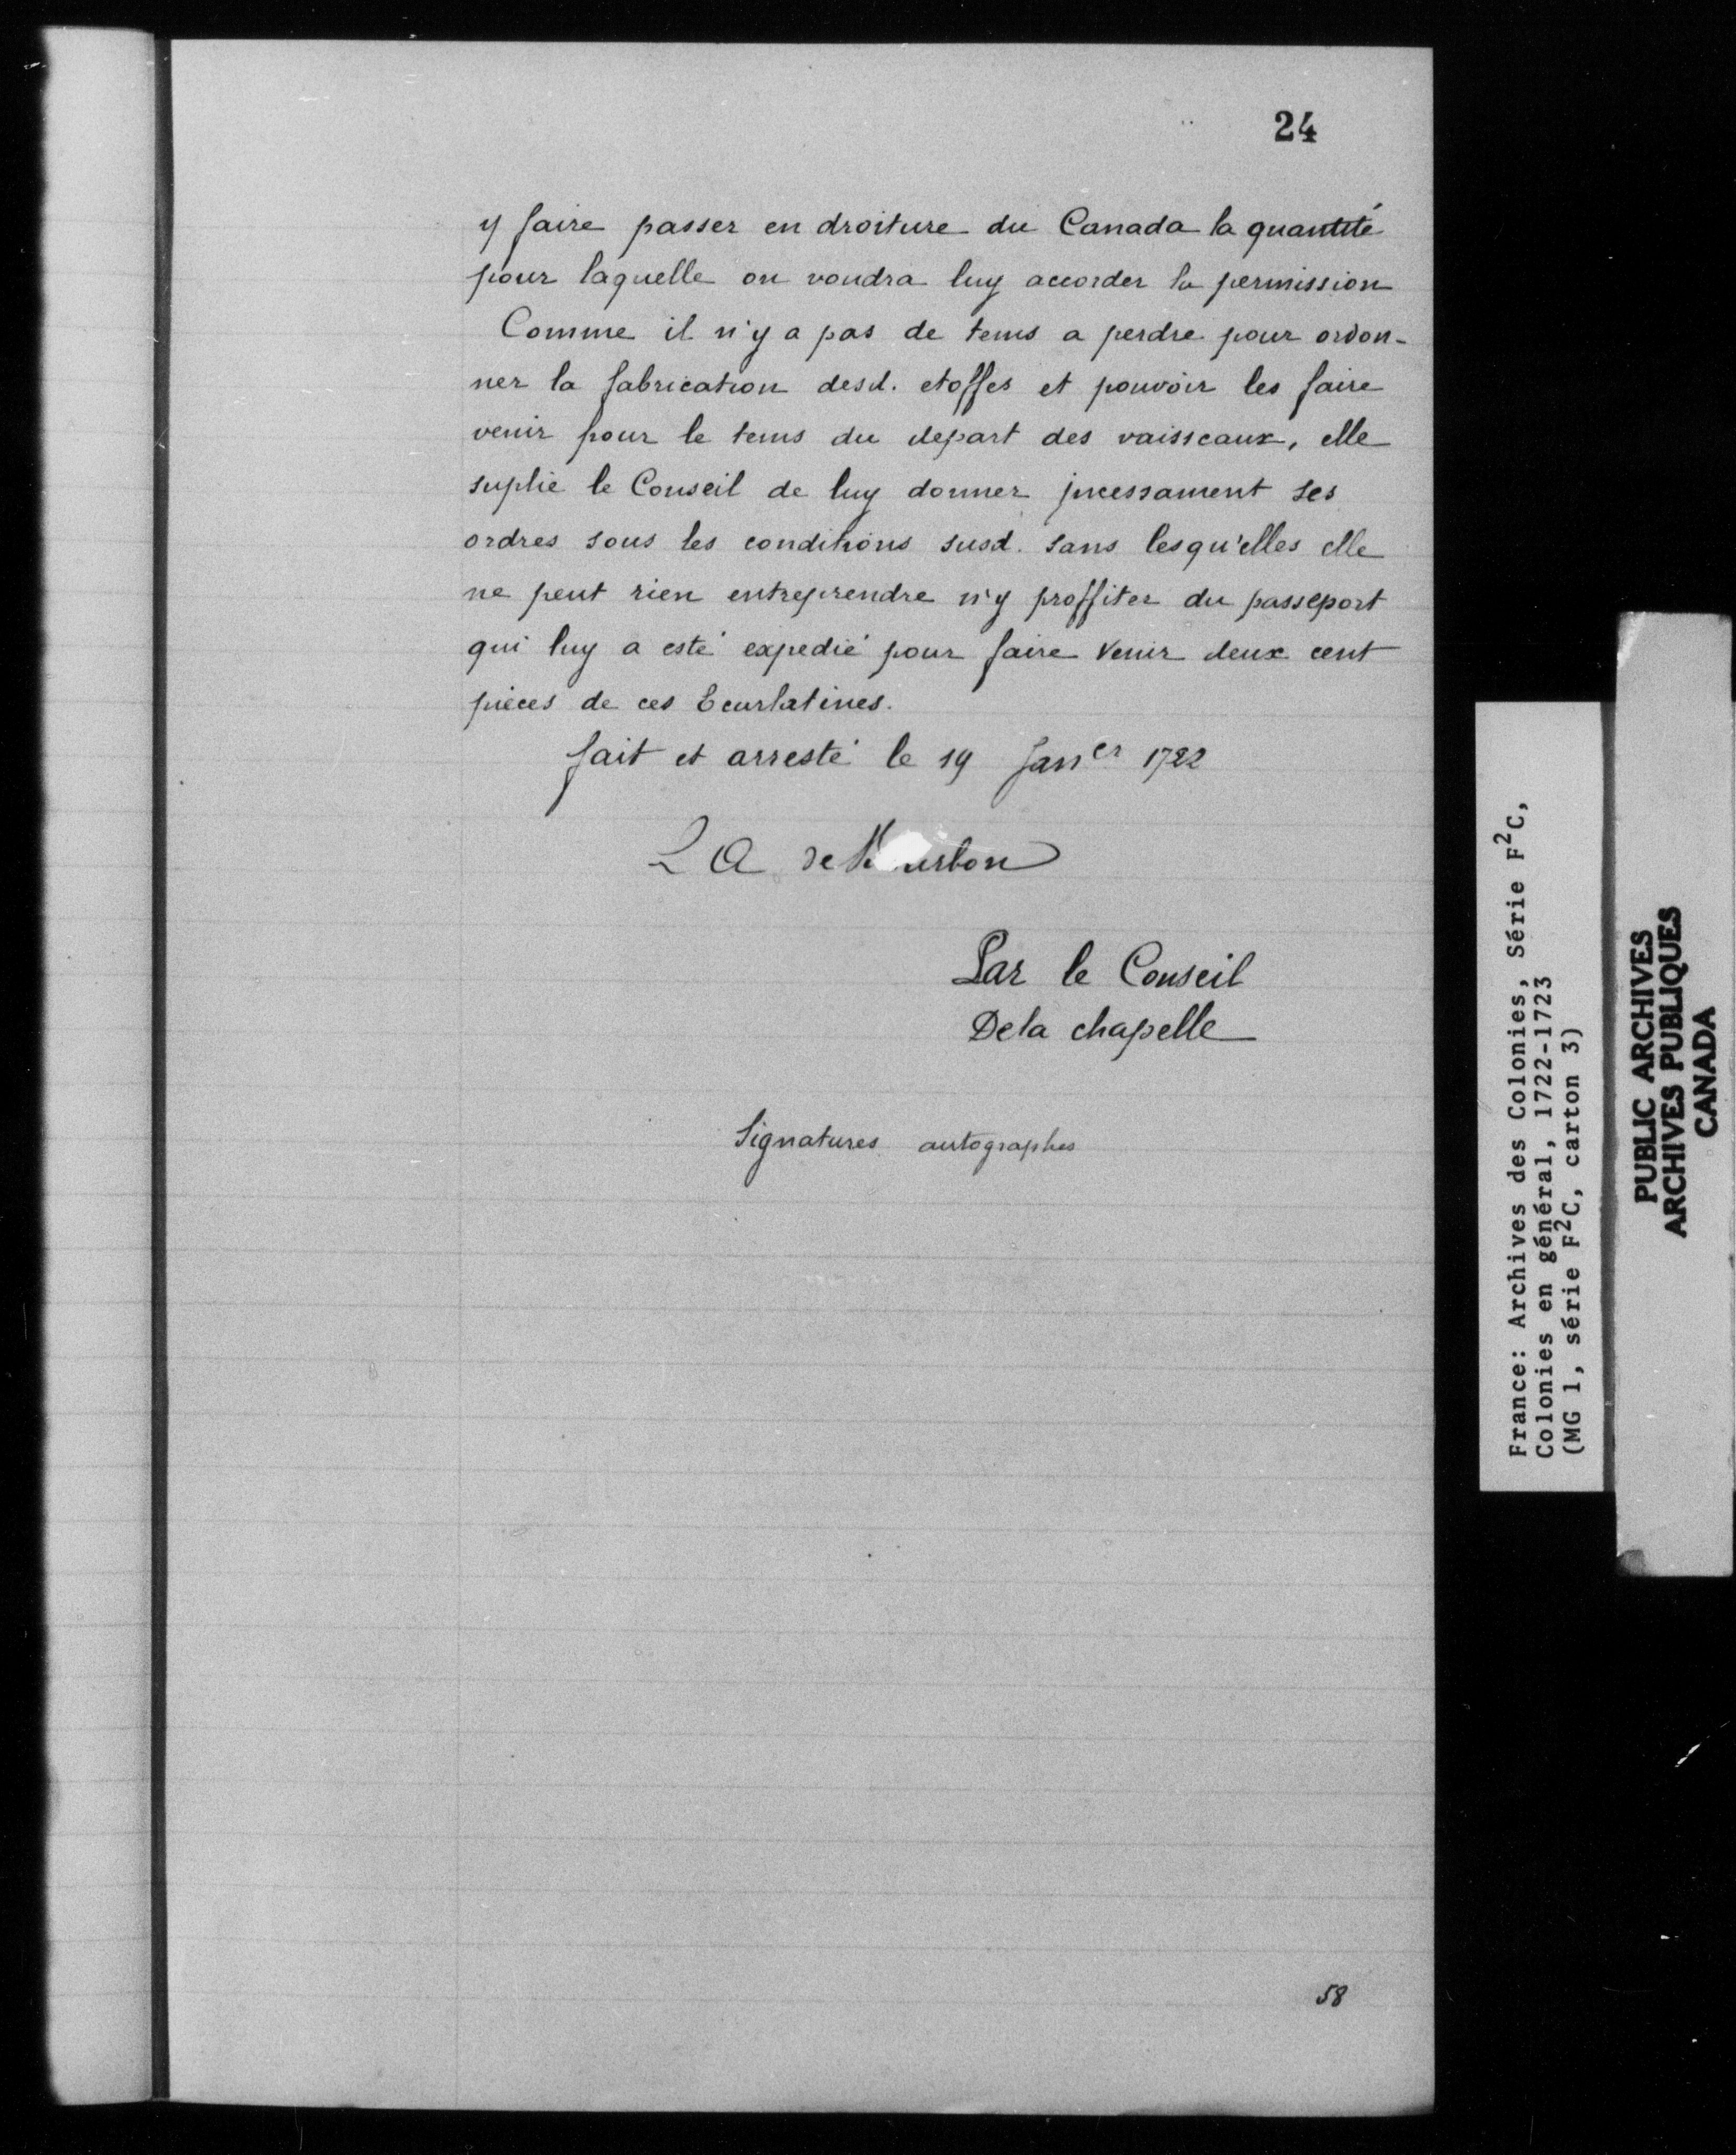 24
y faire passer en droiture du Canada la quantité
pour laquelle on voudra luy accorder la permission
Comme il n'y a pas de tems a perdre pour ordon-
ner la fabrication desd. etoffes et pouvoir les faire
venir pour le tems du depart des vaisseaux, elle
suplie le Conseil de luy donner jncessament ses
ordres sous les conditions susd. sans lesqu'elles elle
ne peut rien entreprendre n'y proffiter du passeport
qui luy a esté expedié pour faire venir deux cent
pièces de ces Ecarlatines.
fait et arresté le 19 Jan er 1722
L A de
Par le Conseil
De la chapelle
Signatures autographes
58
France: Archives des Colonies, Série F2C,
Colonies en général, 1722-1723
(MG 1, série F2C, carton 3)
PUBLIC ARCHIVES
ARCHIVES PUBLIQUES
CANADA